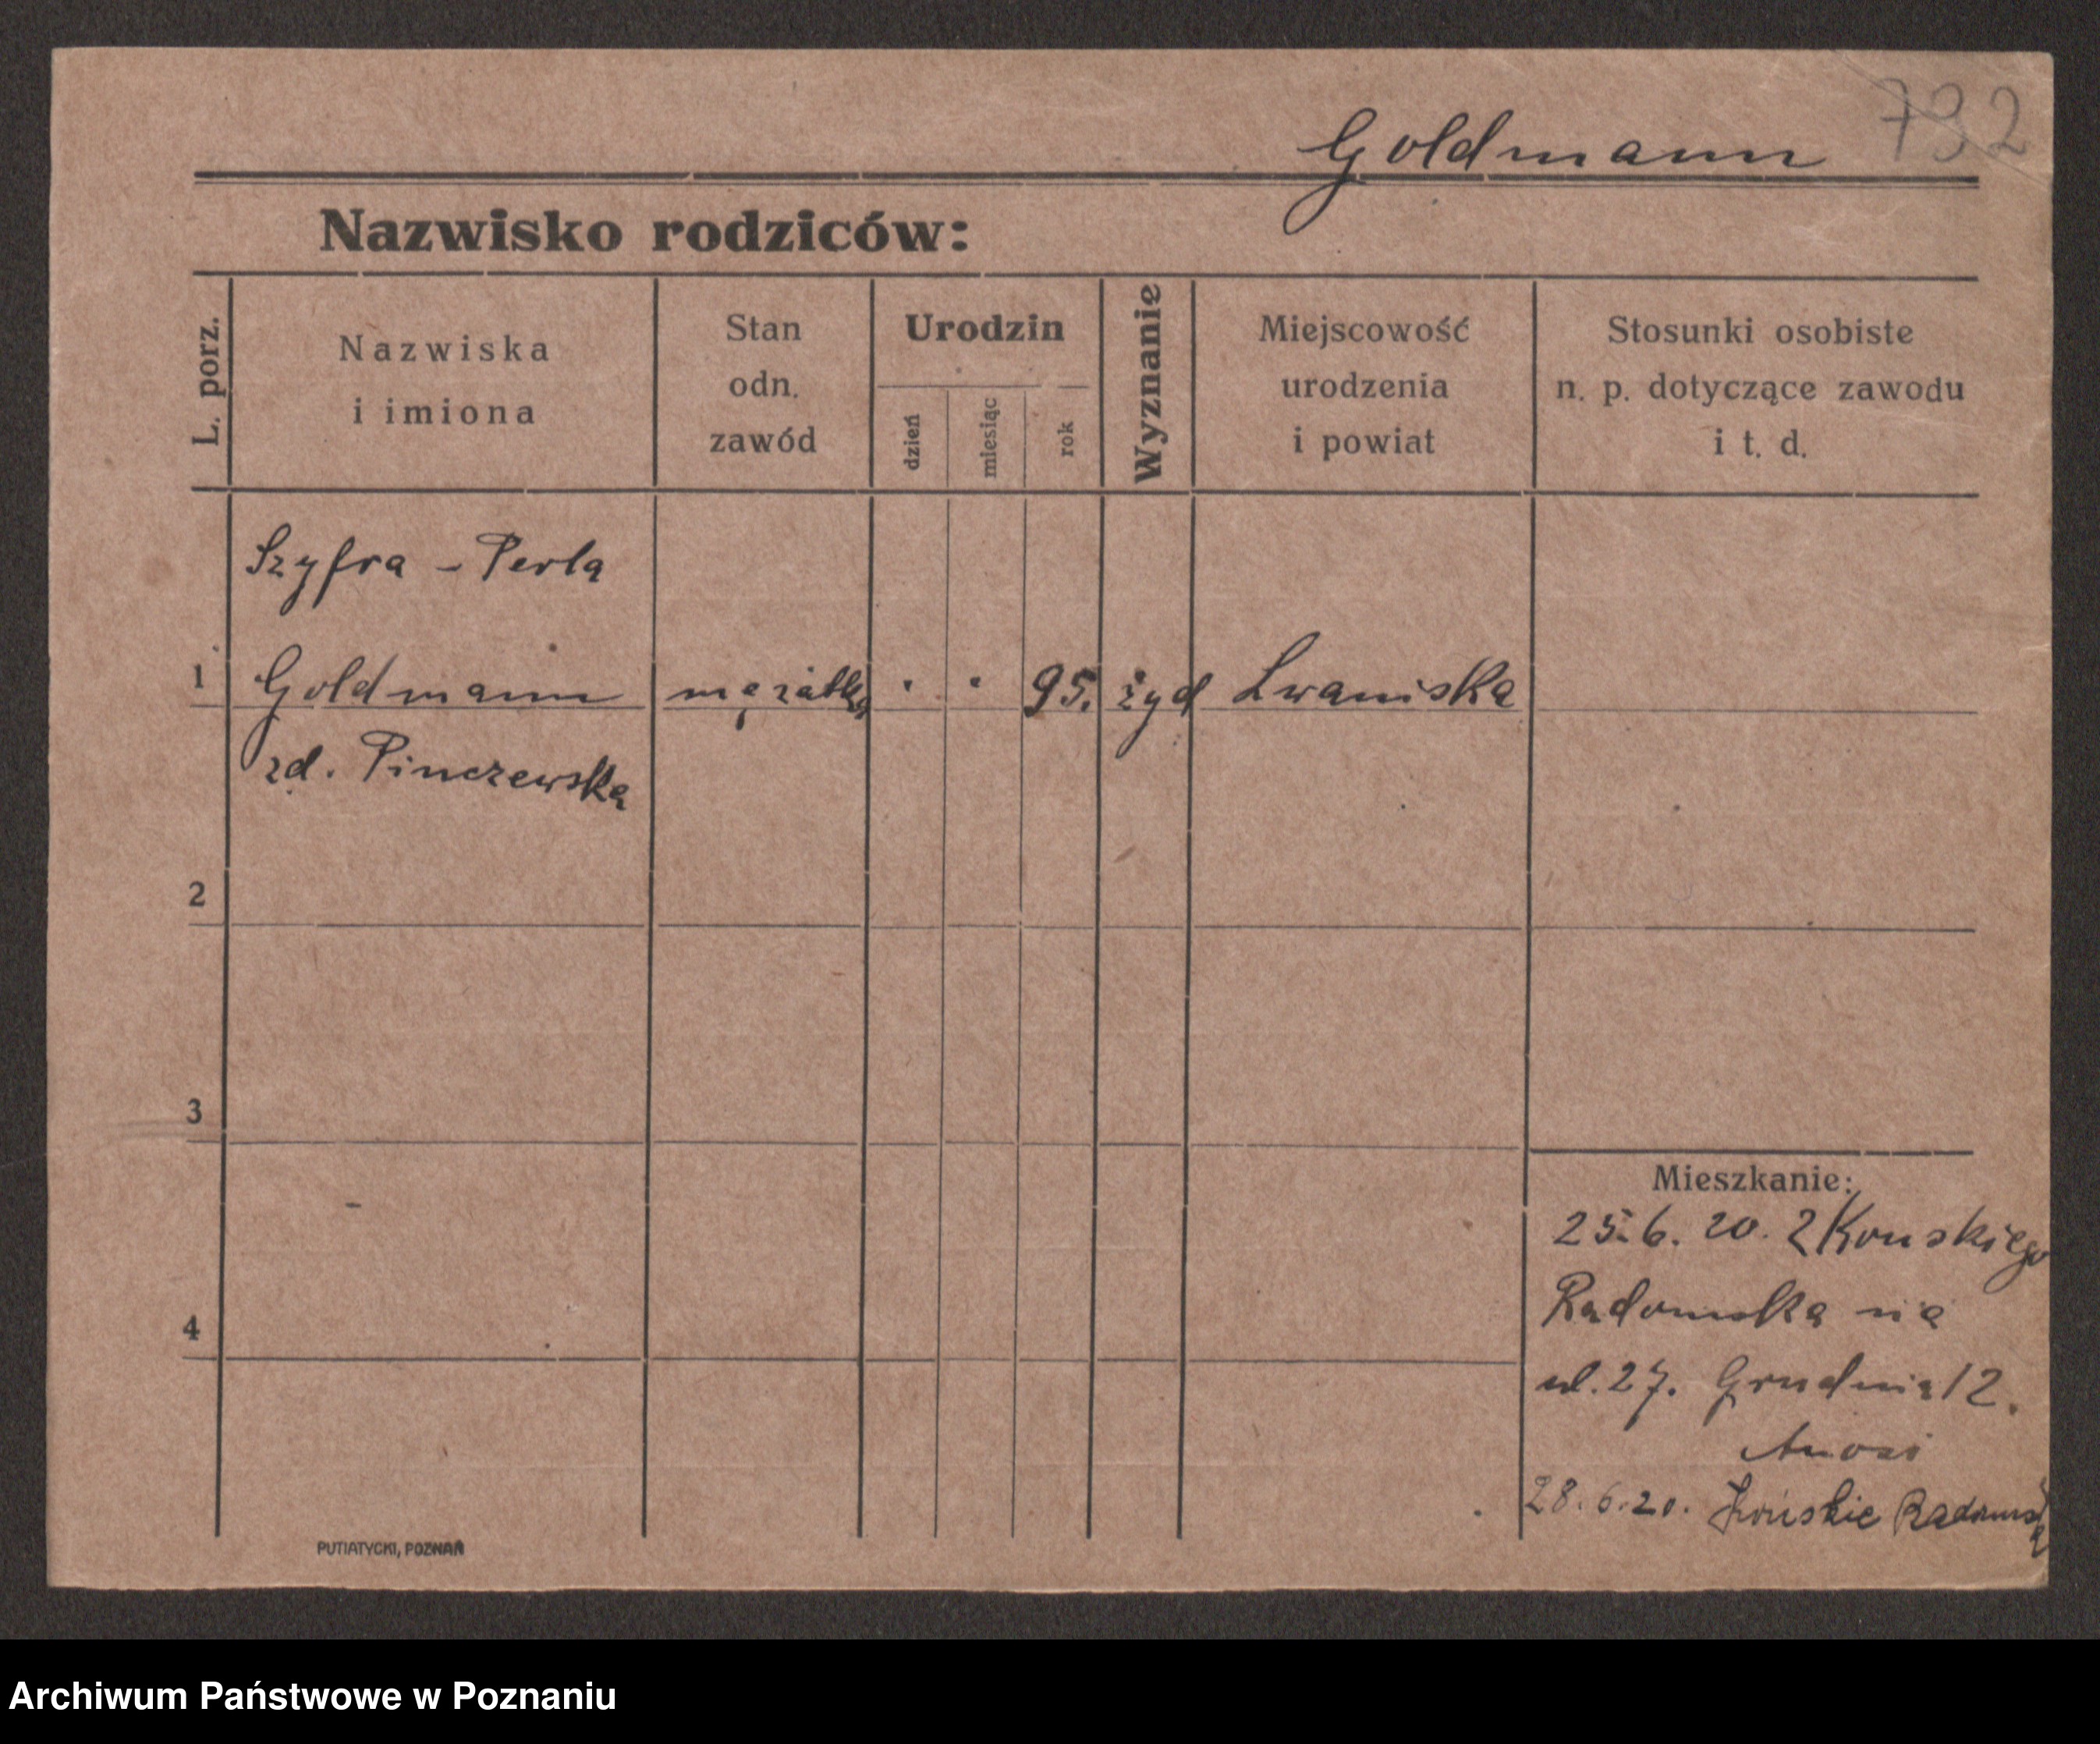 792
Goldmann
Nazwisko rodziców:
L. porz.
Nazwiska
i imiona
Stan
odn.
zawód
Urodzin
dzień
miesiąc
rok
Wyznanie
Miejscowość
urodzenia
i powiat
Stosunki osobiste
n. p. dotyczące zawodu
i t. d.
Szyfra - Perla
1 Goldmann mężatka " " 95. żyd Lwaniska
zd. Pinczewska
2
3
4
Mieszkanie:
25.6.20. Z Konskiego
Radomska na
ul. 27. Grudnia 12.
28.6.20. Końskie Radomska
PUTIATYCKI, POZNAŃ
Archiwum Państwowe w Poznaniu